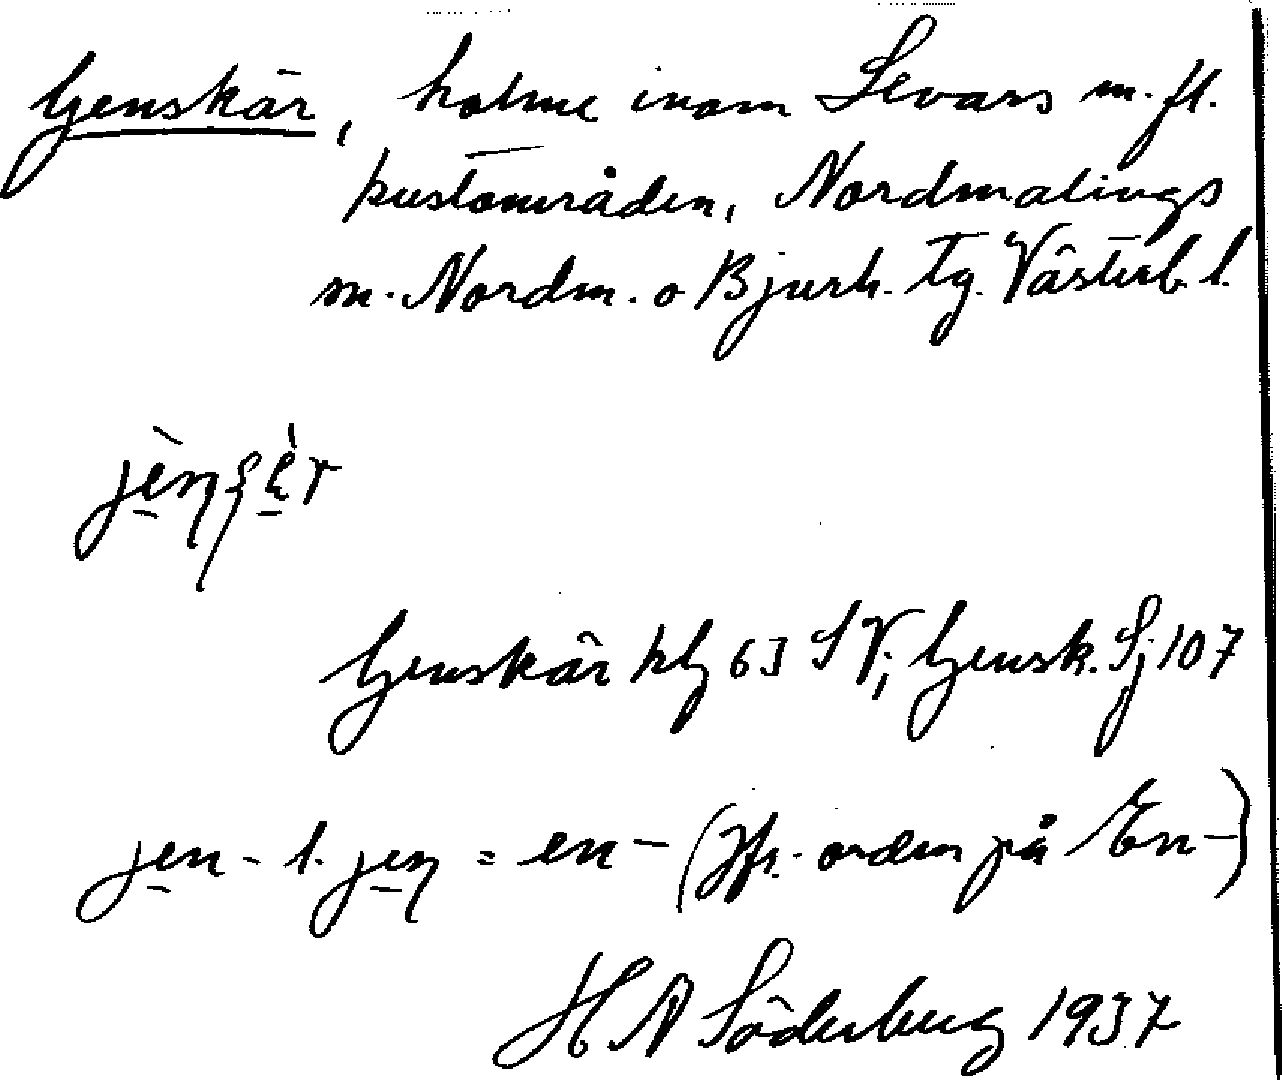 Genskär, holme inom Levars m. fl.
kustområden, Nordmalings
m. Nordm. o Bjurh. tg. Västerb. l.
Genskär 63 SV; Gensk. Sj 107
jen- l. jeɳ = en- (Jfr. orden på En-)
H A Söderberg 1937